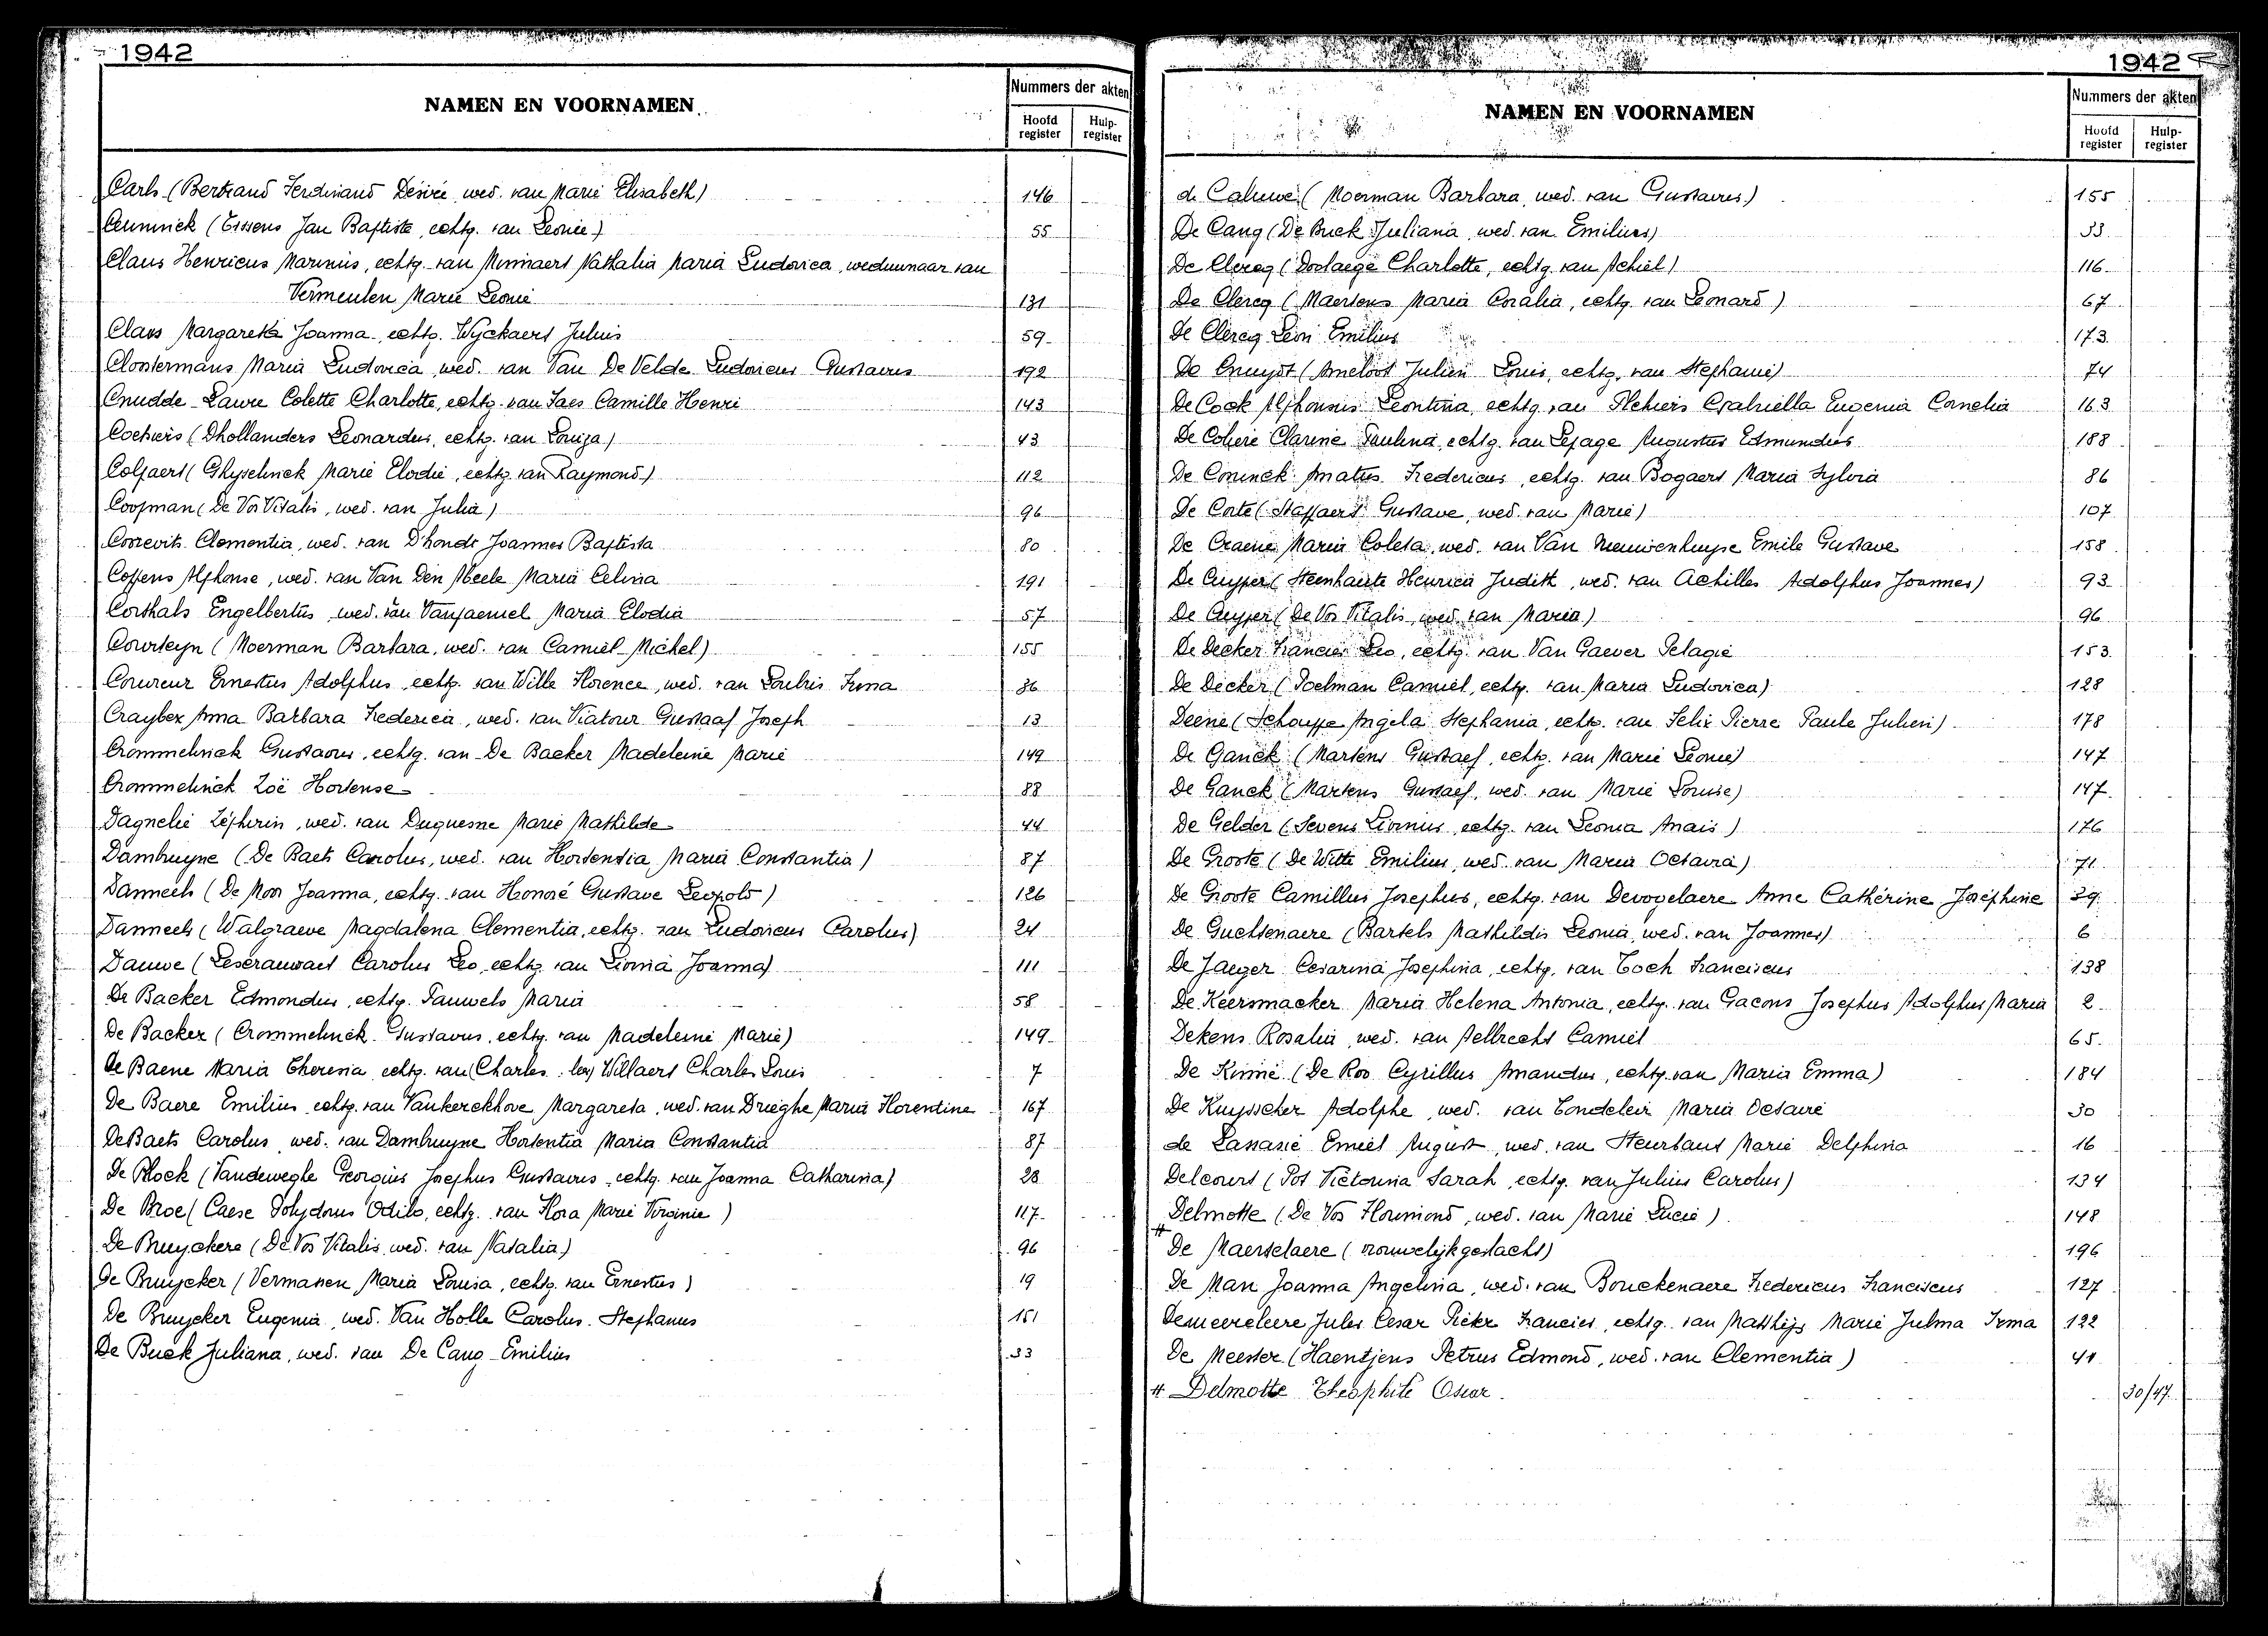 1942
NAMEN EN VOORNAMEN
Nummers der akten
Hoofd register
Hulp-register
Carls (Bertrand Ferdinand Désiré, wed. van Marie Elisabeth) 146
Ceuninck (Eissens Jan Baptiste, echtg. van Leonie) 55
Claus Henricus Marinus, echtg. van Minnaert Nathalia Maria Ludovica, weduwnaar van
Vermeulen Marie Leonie 131
Claus Margareta Joanna, echtg. Wyckaert Julius 59
Clostermans Maria Ludovica, wed. van Van De Velde Ludovicus Gustavus 192
Cnudde Laure Colette Charlotte, echtg. van Saes Camille Henri 143
Coeheirs (Dhollanders Leonardus, echtg. van Louiza) 43
Colpaert (Ghyselinck Marie Elodie, echtg. van Raymond) 112
Coopman (De Vos Vitalis, wed. van Julia) 96
Coorevits Clementia, wed. van D'hondt Joannes Baptista 80
Coppens Alphonse, wed. van Van Den Abeele Maria Celina 191
Corthals Engelbertus, wed. van Vanpaemel Maria Elodia 57
Courteyn (Moerman Barbara, wed. van Camiel Michel) 155
Couvreur Ernestus Adolphus, echtg. van Wille Florence, wed. van Loubris Irma 36
Craybex Anna Barbara Frederica, wed. van Viatour Gustaaf Joseph 13
Crommelinck Gustavus, echtg. van De Backer Madeleine Marie 149
Crommelinck Zoë Hortense 88
Dagnelie Zéphirin, wed. van Duquesne Marie Mathilde 44
Dambruyne (De Baets Carolus, wed. van Hortensia Maria Constantia) 87
Danneels (De Moor Joanna, echtg. van Honoré Gustave Leopold) 126
Danneels (Walgraeve Magdalena Clementia, echtg. van Ludovicus Carolus) 24
Dauwe (Leserauwaet Carolus Leo, echtg. van Livina Joanna) 111
De Backer Edmondus, echtg. Pauwels Maria 58
De Backer (Crommelinck Gustavus, echtg. van Madeleine Marie) 149
De Baene Maria Theresia, echtg. van (Charles lez) Willaert Charles Louis 7
De Baere Emilius, echtg. van Vankerckhove Margareta, wed. van Drieghe Maria Florentine 167
De Baets Carolus, wed. van Dambruyne Hortentia Maria Constantia 87
De Block (Vandeweghe Georgius Josephus Gustavus, echtg. van Joanna Catharina) 28
De Broe (Caese Polydorus Odilo, echtg. van Flora Marie Virginie) 117
De Bruyckere (De Vos Vitalis, wed. van Natalia) 96
De Bruycker (Vermassen Maria Louisa, echtg. van Ernestus) 19
De Bruycker Eugenia, wed. Van Holle Carolus Stephanus 151
De Buck Juliana, wed. van De Cang Emilius 33
1942
NAMEN EN VOORNAMEN
Nummers der akten
Hoofd register
Hulp-register
de Caluwe (Moerman Barbara, wed. van Gustavus) 155
De Cang (De Buck Juliana, wed. van Emilius) 33
De Clercq (Doolaege Charlotte, echtg. van Achiel) 116
De Clercq (Maertens Maria Coralia, echtg. van Leonard) 67
De Clercq Leon Emilius 173
De Cnuydt (Ameloot Julien Louis, echtg. van Stephanie) 74
De Cock Alphonsus Leontina, echtg. van Gabriella Eugenia Cornelia 163
De Cohere Clarine Paulina, echtg. van Lepage Augustus Edmundus 188
De Coninck Amatus Fredericus, echtg. van Bogaert Maria Sylvia 86
De Corte (Stassaert Gustave, wed. van Marie) 107
De Craene Maria Coleta, wed. van Van Nieuwenhuyse Emile Gustave 158
De Cuyper (Steenhaute Henrica Judith, wed. van Achilles Adolphus Joannes) 93
De Cuyper (De Vos Vitalis, wed. van Maria) 96
De Decker Francies Leo, echtg. van Van Gaever Pelagie 153
De Decker (Poelman Camiel, echtg. van Maria Ludovica) 128
Deene (Schouppe Angela Stephania, echtg. van Felix Pierre Paule Julien) 178
De Ganck (Martens Gustaef, echtg. van Marie Leonie) 147
De Ganck (Martens Gustaef, wed. van Marie Louise) 147
De Gelder (Sevens Livinus, echtg. van Leonia Anais) 176
De Groote (De Witte Emilius, wed. van Maria Octavia) 71
De Groote Camillus Josephus, echtg. van Devogelaere Anne Cathérine Joséphine 39
De Guchtenaere (Bartels Mathildis Leonia, wed. van Joannes) 6
De Jaeger Cesarina Josephina, echtg. van Toch Franciscus 138
De Keersmacker Maria Helena Antonia, echtg. van Gacons Josephus Adolphus Maria 2
Dekens Rosalia, wed. van Aelbrecht Camiel 65
De Kimie (De Roo Cyrillus Amandus, echtg. van Maria Emma) 184
De Kuysscher Adolphe, wed. van Tondeleir Maria Octavie 30
de Lassasie Emiel August, wed. van Steurbaut Marie Delphina 16
Delcourt (Pot Victorina Sarah, echtg. van Julius Carolus) 134
Delmotte (De Vos Florimond, wed. van Marie Lucie) 148
# De Maerschaere (vrouwelijk geslacht) 196
De Man Joanna Angelina, wed. van Bouckenaere Fredericus Franciscus 127
Demeereleere Jules Cesar Pieter Francies, echtg. van Matthijs Marie Julma Irma 122
De Meester (Haentjens Petrus Edmond, wed. van Clementia) 41
# Delmotte Theophile Oscar 30/47